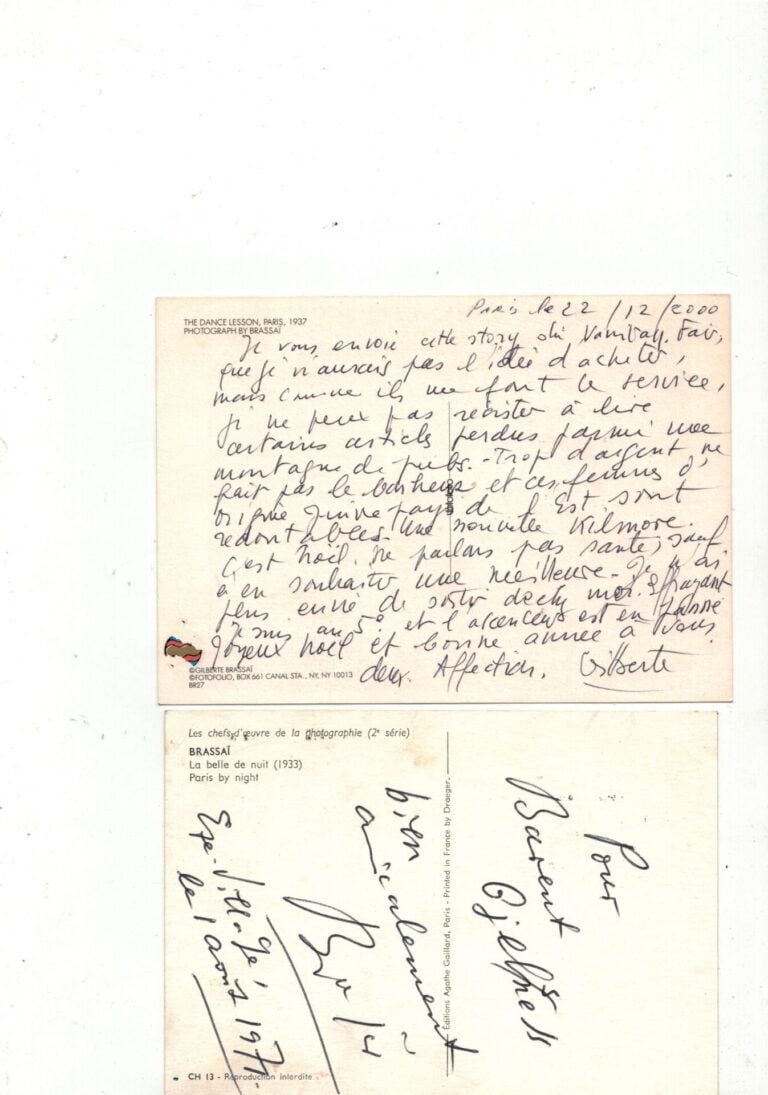 Paris le 22/12/2000
THE DANCE LESSON, PARIS, 1937
PHOTOGRAPH BY BRASSAÏ
Je vous envoie cette story du Vanitay. Fair,
que je n'aurais pas l'idée d'acheter,
mais comme ils me font le service,
je ne peux pas résister à lire
certains articles perdus parmi une
montagne de pubs. - Trop d'argent ne
fait pas le bonheur et ces femmes d'
origine juive pays de l'Est sont
redoutables. Une nouvelle Kilmore.
C'est Noël. ne parlons pas santé, sauf
à en souhaiter une meilleure - Je n'ai
plus envie de sortir de chez moi. Effrayant
Je suis au 5º et l'ascenceur est en panne
Joyeux Noël et bonne année à vous
deux. Affection. Gilberte
©GILBERTE BRASSAÏ
©FOTOFOLIO, BOX 661 CANAL STA., NY, NY 10013
BR27
Les chefs d'œuvre de la photographie (2e série)
BRASSAÏ
La belle de nuit (1933)
Paris by night
Pour
Barent
bien
amicalement
Eze-Village,
le 1 août 1971
Éditions Agathe Gaillard, Paris - Printed in France by Draeger.
CH 13 - Reproduction interdite